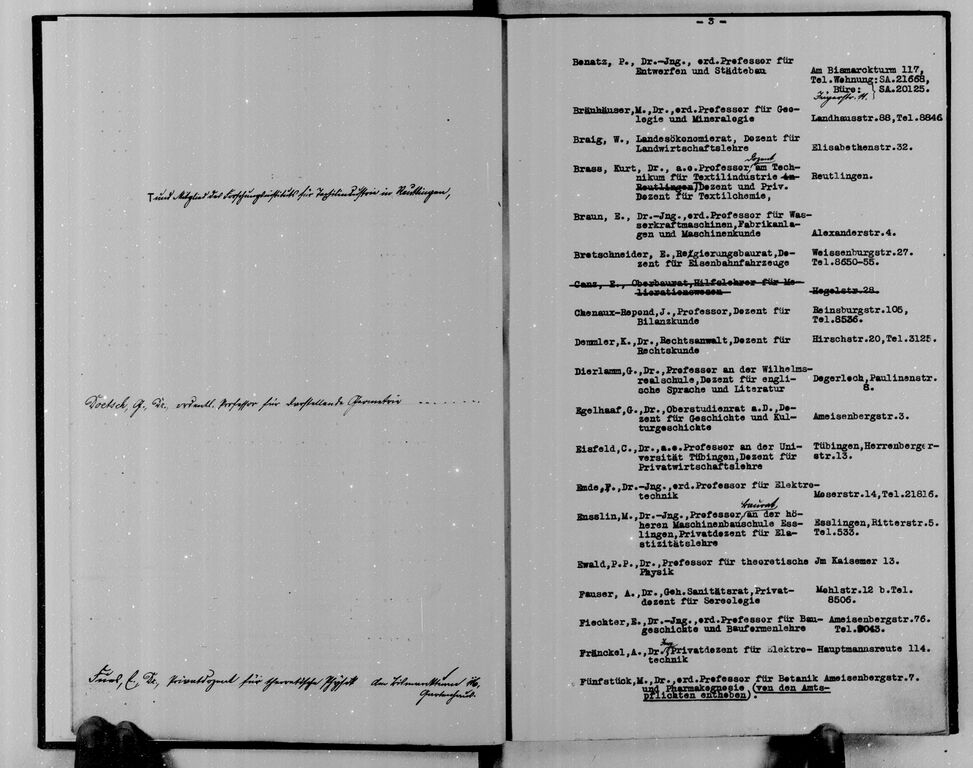 und Mitglied des Forschungsinstituts für Textilindustrie in Reutlingen,
Doetsch, G., Dr., ordentl. Professor für darstellende Geometrie . . . . . . . .
Fues, E., Dr., Privatdozent für theoretische Physik Am Bismarckturm
Gartenhaus.
- 3 -
Bonatz, P., Dr.-Jng., ord.Professor für
Entwerfen und Städtebau
Am Bismarckturm 117,
Tel.Wohnung:SA.21668,
Büro: SA.20125.
Jägerstr.
Bräuhäuser,M.,Dr.,ord.Professor für Geo-
logie und Mineralogie Landhausstr.88,Tel.8846
Braig, W., Landesökonomierat, Dozent für
Landwirtschaftslehre Elisabethenstr.32.
Dozent
Brass, Kurt, Dr., a.o.Professor, am Tech-
nikum für Textilindustrie in Reutlingen.
Reutlingen, Dozent und Priv.
Dozent für Textilchemie,
Braun, E., Dr.-Jng.,ord.Professor für Was-
serkraftmaschinen,Fabrikanla-
gen und Maschinenkunde Alexanderstr.4.
Bretschneider, E.,Regierungsbaurat,Do- Weissenburgstr.27.
zent für Eisenbahnfahrzeuge Tel.8650-55.
Canz, E., Oberbaurat,Hilfslehrer für Me-
liorationswesen Hegelstr.28
Chenaux-Repond,J.,Professor,Dozent für Reinsburgstr.105,
Bilanzkunde Tel.8536.
Demmler,K.,Dr.,Rechtsanwalt,Dozent für Hirschstr.20,Tel.3125.
Rechtskunde
Dierlamm,G.,Dr.,Professor an der Wilhelms-
realschule,Dozent für engli- Degerloch,Paulinenstr.
sche Sprache und Literatur 8.
Egelhaaf,G.,Dr.,Oberstudienrat a.D.,Do-
zent für Geschichte und Kul- Ameisenbergstr.3.
turgeschichte
Eisfeld,C.,Dr.,a.o.Professor an der Uni- Tübingen,Herrenberger-
versität Tübingen,Dozent für str.13.
Privatwirtschaftslehre
Emde,F.,Dr.-Jng.,ord.Professor für Elektro-
technik Moserstr.14,Tel.21816.
Baurat
Ensslin,M.,Dr.-Jng.,Professor, an der hö-
heren Maschinenbauschule Ess- Esslingen,Ritterstr.5.
lingen,Privatdozent für Ela- Tel.533.
stizitätslehre
Ewald,P.P.,Dr.,Professor für theoretische Jm Kaisemer 13.
Physik
Fauser, A.,Dr.,Geh.Sanitätsrat,Privat- Mohlstr.12 b.Tel.
dozent für Serologie 8506.
Fiechter,E.,Dr.-Jng.,ord.Professor für Bau- Ameisenbergstr.76.
geschichte und Bauformenlehre Tel.9043.
Jng.
Fränckel,A.,Dr. Privatdozent für Elektro- Hauptmannsreute 114.
technik
Fünfstück,M.,Dr.,ord.Professor für Botanik Ameisenbergstr.7.
und Pharmakognosie (von den Amts-
pflichten entheben).